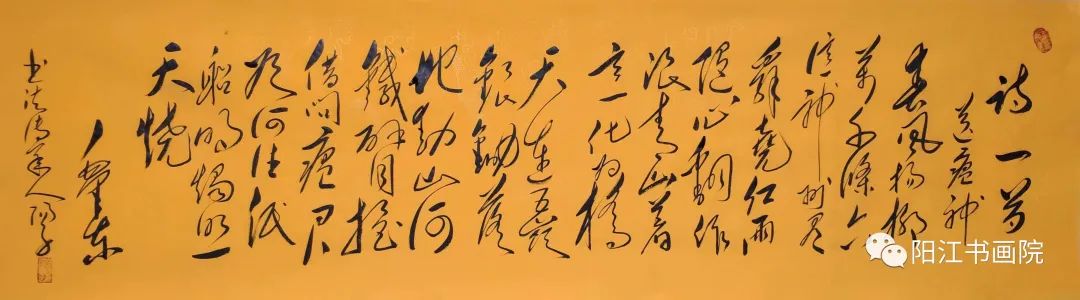 诗一首
送瘟神
春风杨柳
万千條六
亿神州尽
舜尧红雨
随心翻作
浪青山着
意化为橋
天连五岭
銀鋤落
地动山河
鐵臂摇
借问瘟君
欲何往纸
船明烛照
天烧
毛泽东
书法传承人
阳江书画院